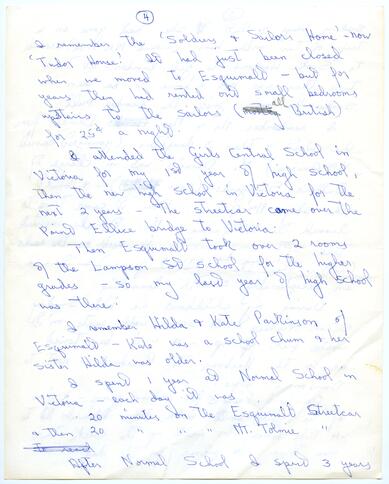 4
I remember the 'Soldiers & Sailors Home' - now
'Tudor House'. It had just been closed
when we moved to Esquimalt - but for
years they had rented out small bedrooms
upstairs to the sailors (all British)
for 25¢ a night.
I attended the Girls Central School in
Victoria for my 1st year of high school,
then the new high school in Victoria for the
next 2 years - The streetcar came over the
Point Ellice bridge to Victoria.
Then Esquimalt took over 2 rooms
of the Lampson St school for the higher
grades - so my last year of high school
was there.
I remember Hilda & Kate Parkinson of
Esquimalt - Kate was a school chum & her
sister Hilda was older.
I spent 1 year at Normal School in
Victoria - each day it was
20 minutes on the Esquimalt Streetcar
& then 20 " " " Mt. Tolmie "
to read
After Normal School I spent 3 years